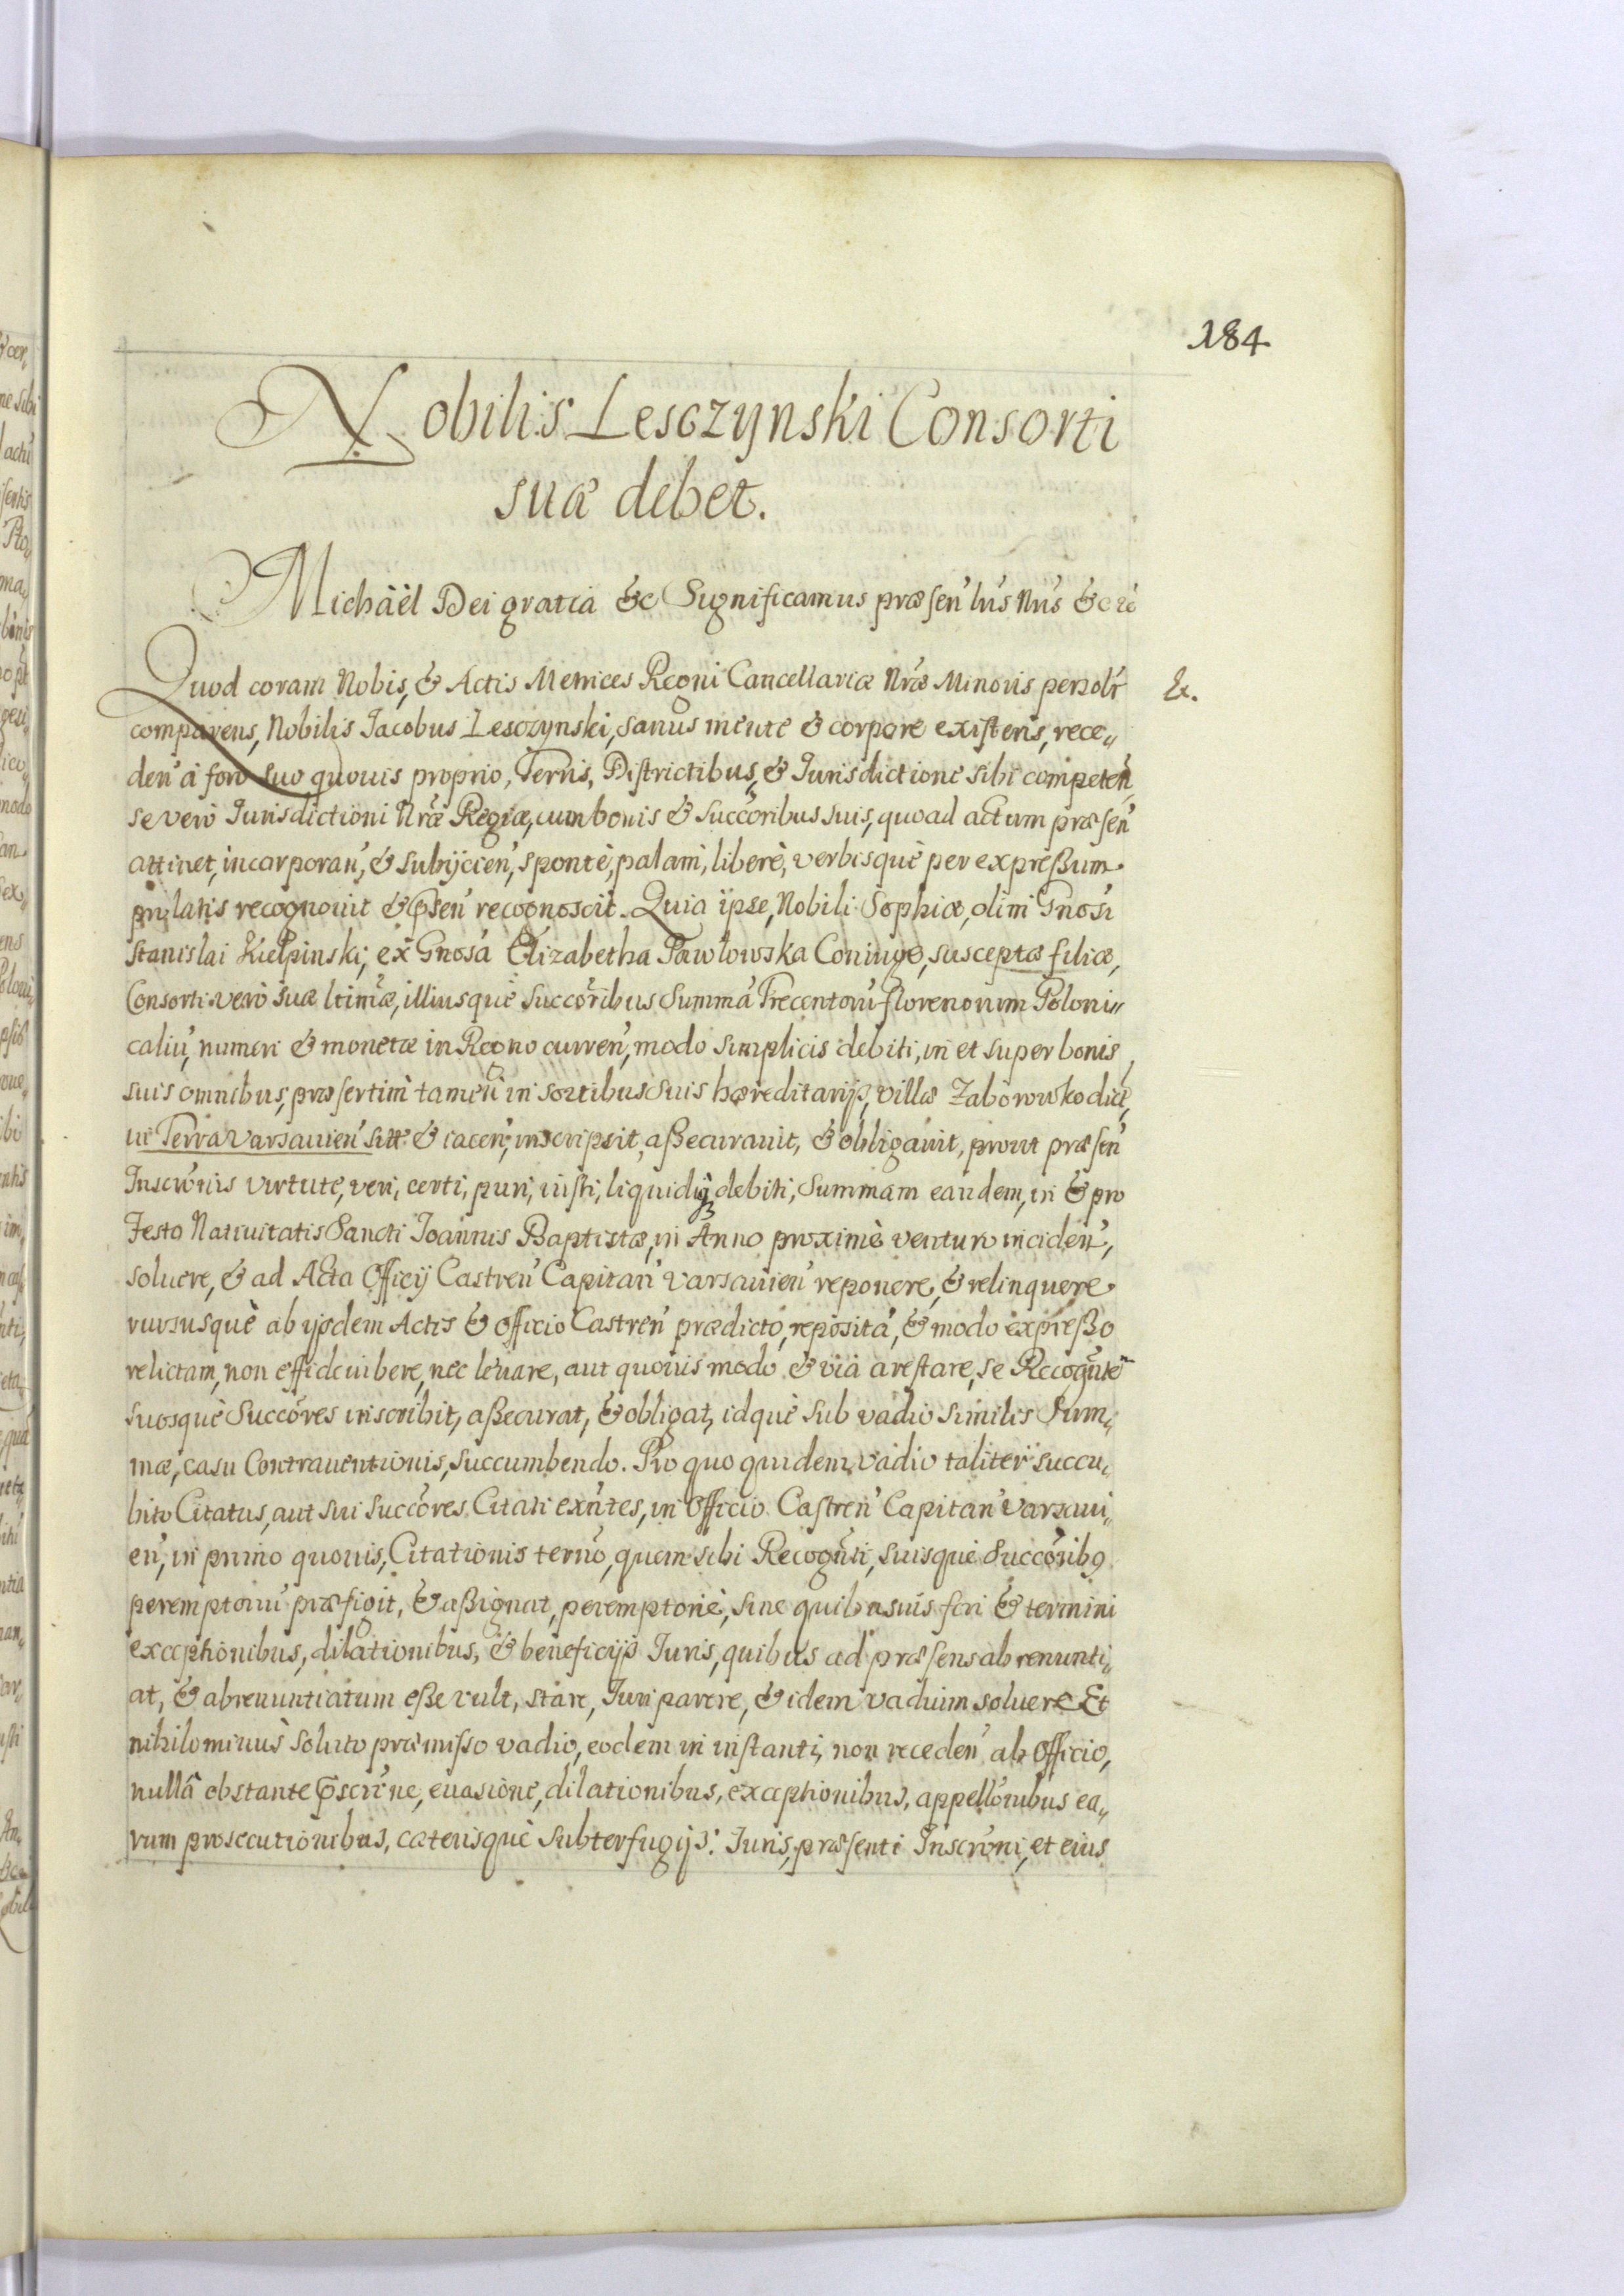 184
Nobilis Lesczynski Consorti
suæ debet.
Michäel Dei gratia &c Significamus præsen̄ lus Nūs &c rē
Quod coram Nobis, & Actis Metrices Regni Cancellariæ Nræ Minoris personlr
Ex.
comparens, Nobilis Jacobus Lesczynski, sanus mente & corpore existens, rece„
den̄ à foro suo quouis proprio, Terris, Districtibus, & Jurisdictione sibi competen̄,
se verò Jurisdictioni Nræ Regiæ, cum bonis & succoribus suis, quoad actum præsen̄
attinet, incorporan̄, & subijcien̄, spontè, palam, liberè, verbisquè per expreßum
prolatis recognouit & p̄sen̄ recognoscit. Quia ipse, Nobili Sophiæ, olim Gnosi
Stanislai Kiełpinski, ex Gnosa Elizabetha Pawłowska Coniuge, susceptæ filiæ,
Consorti verò suæ ltimæ, illiusquè succoribus Summā Trecentorū florenorum Poloni„
caliū, numeri & monetæ in Regno curren̄, modo simplicis debiti, in et super bonis
suis omnibus, præsertim tamen in sortibus suis hæreditarijs, villæ Zaborowko dictæ,
in Terra Varsauien̄ sitæ & iacen̄, inscripsit, aßecurauit, & obligauit, prout præsen̄
Inscronis virtute, veri, certi, puri, iusti, liquidiq₃ debiti, Summam eandem, in & pro
Festo Natiuitatis Sancti Joannis Baptistæ, in Anno proximè venturo inciden̄,
soluere, & ad Acta Officij Castren̄ Capitan̄ Varsauien̄ reponere, & relinquere
rursusquè ab ijsdem Actis & officio Castren̄ prædicto, repositā, & modo expreßo
relictam, non effidcuibere, nec leuare, aut quouis modo & via arestare, se Recognte͞
suosquè Succores inscribit, aßecurat, & obligat, idquè sub vadio similis Sum„
mæ, casu Contrauentionis, succumbendo. Pro quo quidem vadio taliter succu„
bito Citatus, aut sui succores Citati exn̄tes, in Officio Castren̄ Capitan̄ Varsaui„
en̄, in primo quouis, Citationis ternō, quem sibi Recognti, suisquè Succoribꝯ
peremptoriū præfigit, & aßignat, peremptoriè, sine quibusuis fori & termini
exceptionibus, dilationibus, & beneficijs Juris, quibus ad præsens abrenunti„
at, & abrenuntiatum eße vult, stare, Juri parere, & idem vadium soluere Et
nihilominùs soluto præmisso vadio, eodem in instanti, non receden̄ ab Officio,
nullâ obstante p̄scrīne, euasione, dilationibus, exceptionibus, appellonibus ea„
rum prosecutionibus, cæterisquè subterfugijs: Juris, præsenti Inscroni, et eius